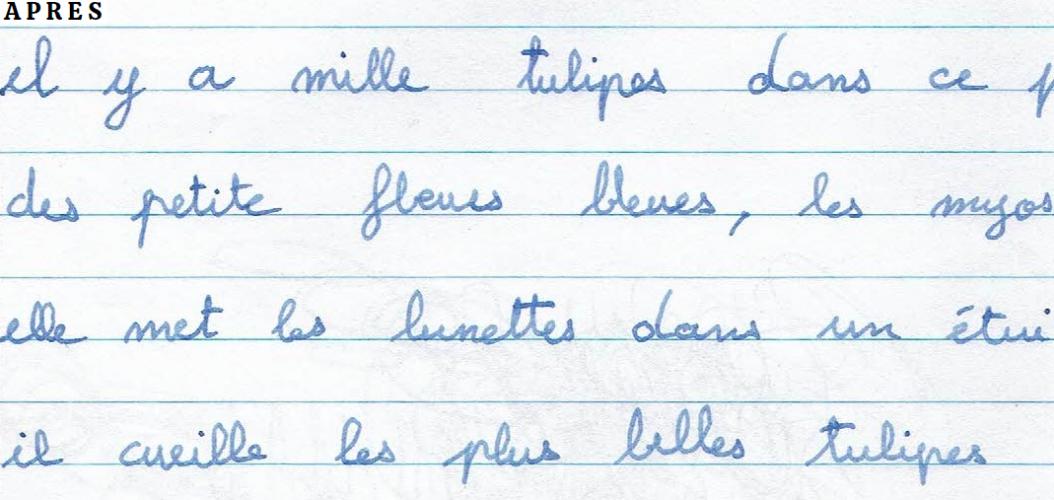 APRES
il y a mille tulipes dans ce p
des petite fleurs bleues, les myos
elle met les lunettes dans un étui
il cueille les plus belles tulipes